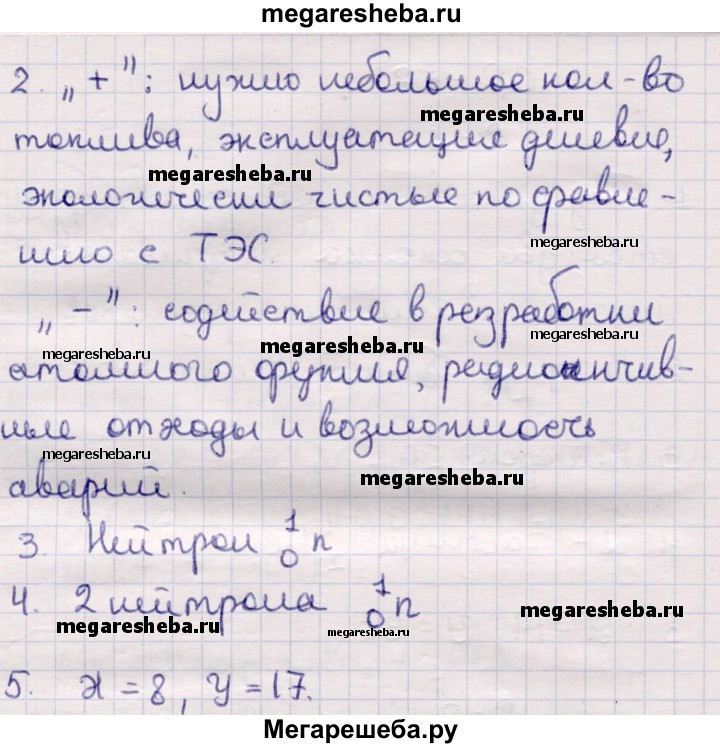 megaresheba.ru
2. „+": нужно небольшое кол-во
megaresheba.ru
топлива, эксплуатация дешевле,
megaresheba.ru
экологически чистые по сравне-
нию с ТЭС.
megaresheba.ru
„-": содействие в резработки
megaresheba.ru
megaresheba.ru
megaresheba.ru
атомного оружия, радиоактив-
ные отходы и возможность
megaresheba.ru
аварий.
megaresheba.ru
3. Нейтрон ¹₀n
4. 2 нейтрона ¹₀n
megaresheba.ru
megaresheba.ru
megaresheba.ru
5. X = 8, Y = 17.
Мегарешеба.ру